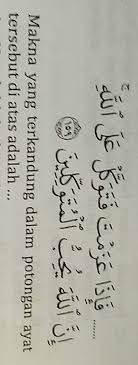 ...... فَإِذَا عَزَمْتَ فَتَوَكَّلْ عَلَى اللَّهِ ۚ
إِنَّ اللَّهَ يُحِبُّ الْمُتَوَكِّلِينَ ﴿١٥٩﴾
Makna yang terkandung dalam potongan ayat
tersebut di atas adalah ...